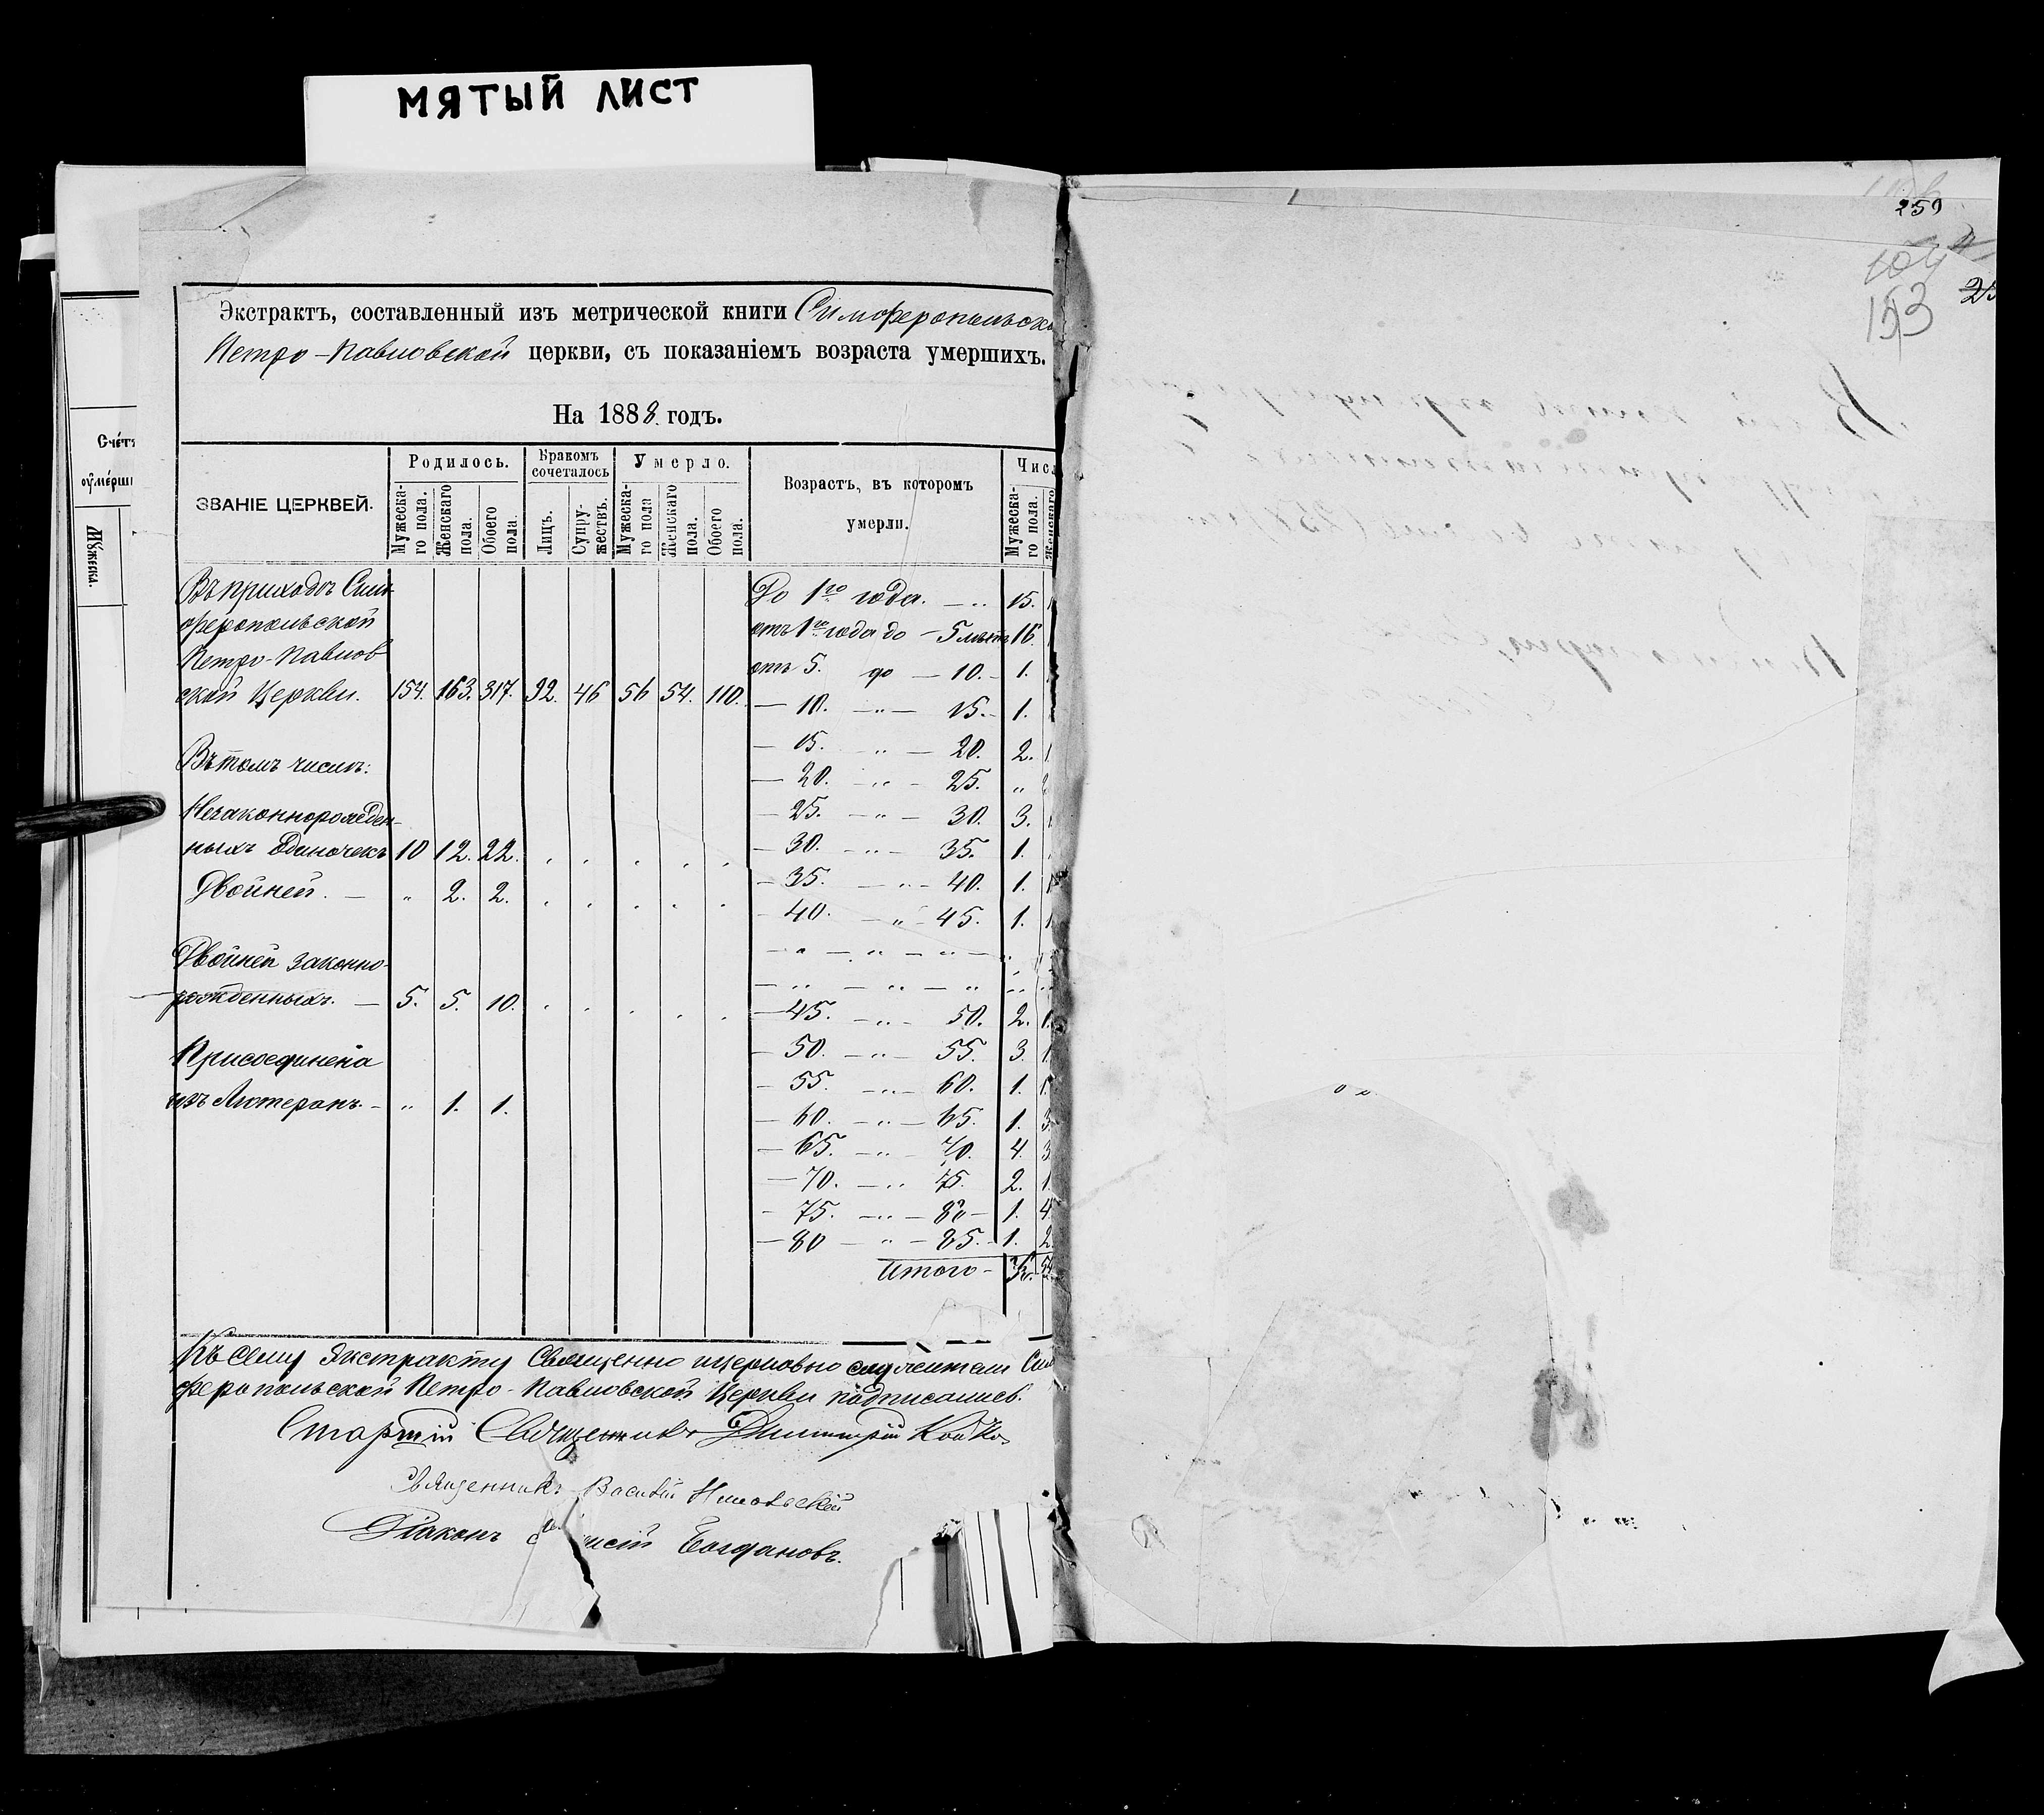 МЯТЫЙ ЛИСТ
Экстрактъ, составленный изъ метрической книги Симферопольско
Петро-Павловской церкви, съ показаніемъ возраста умершихъ.
На 1888 годъ.
ЗВАНІЕ ЦЕРКВЕЙ.
Родилось.
Мужеска-
го пола.
Женскаго
пола.
Обоего
пола.
Бракомъ
сочеталось
Лицъ.
Супру-
жествъ.
Умерло.
Мужеска-
го пола
Женскаго
пола.
Обоего
пола.
Возрастъ, въ котором
умерли.
Числ
Мужеска-
го пола.
Женскаго
Въ приходѣ Сим-
феропольской
Петро-Павлов
ской Церкви. 154. 163. 317. 92. 46 56 54. 110.
Въ томъ числѣ:
Незаконнорожден-
ныхъ Одиночекъ 10 12. 22.
Двойней. — „ 2. 2.
Двойней законно-
рожденныхъ. — 5. 5. 10.
Присоединена
изъ Лютеранъ. - „ 1. 1.
До 1го года. — „ 15.
отъ 1го года до — 5 лѣтъ 16.
отъ 5. до — 10. - 1.
— 10. — „ — 15. - 1.
— 15. „ — 20. 2. 1
— 20. — „ — 25. „
— 25. — „ — 30. 3.
— 30. — „ — 35. 1.
— 35. — „ — 40. 1. 1
— 40. — „ — 45. 1. 1.
— „ — „ — „ —
— „ — „ — „
— 45. — „ — 50. 2. 1.
— 50. — „ — 55. 3. 1.
— 55. — „ — 60. 1. 1.
— 60. — „ — 65. 1. 3.
— 65. — „ — 70. 4. 3
— 70. — „ 75. 2. 1.
— 75. — „ — 80 — 1. 4.
— 80 — „ — 85. - 1. 2.
Итого - 56. 54
Къ сему Экстракту Священно и церковно служители Сим
феропольской Петро-Павловской Церкви подписались.
Старшій Священникъ Димитрій Койко
Священникъ Василій Никольскій
Діаконъ Богдановъ.
Счетъ
оумерши
Мужеска.
259
104
153
25